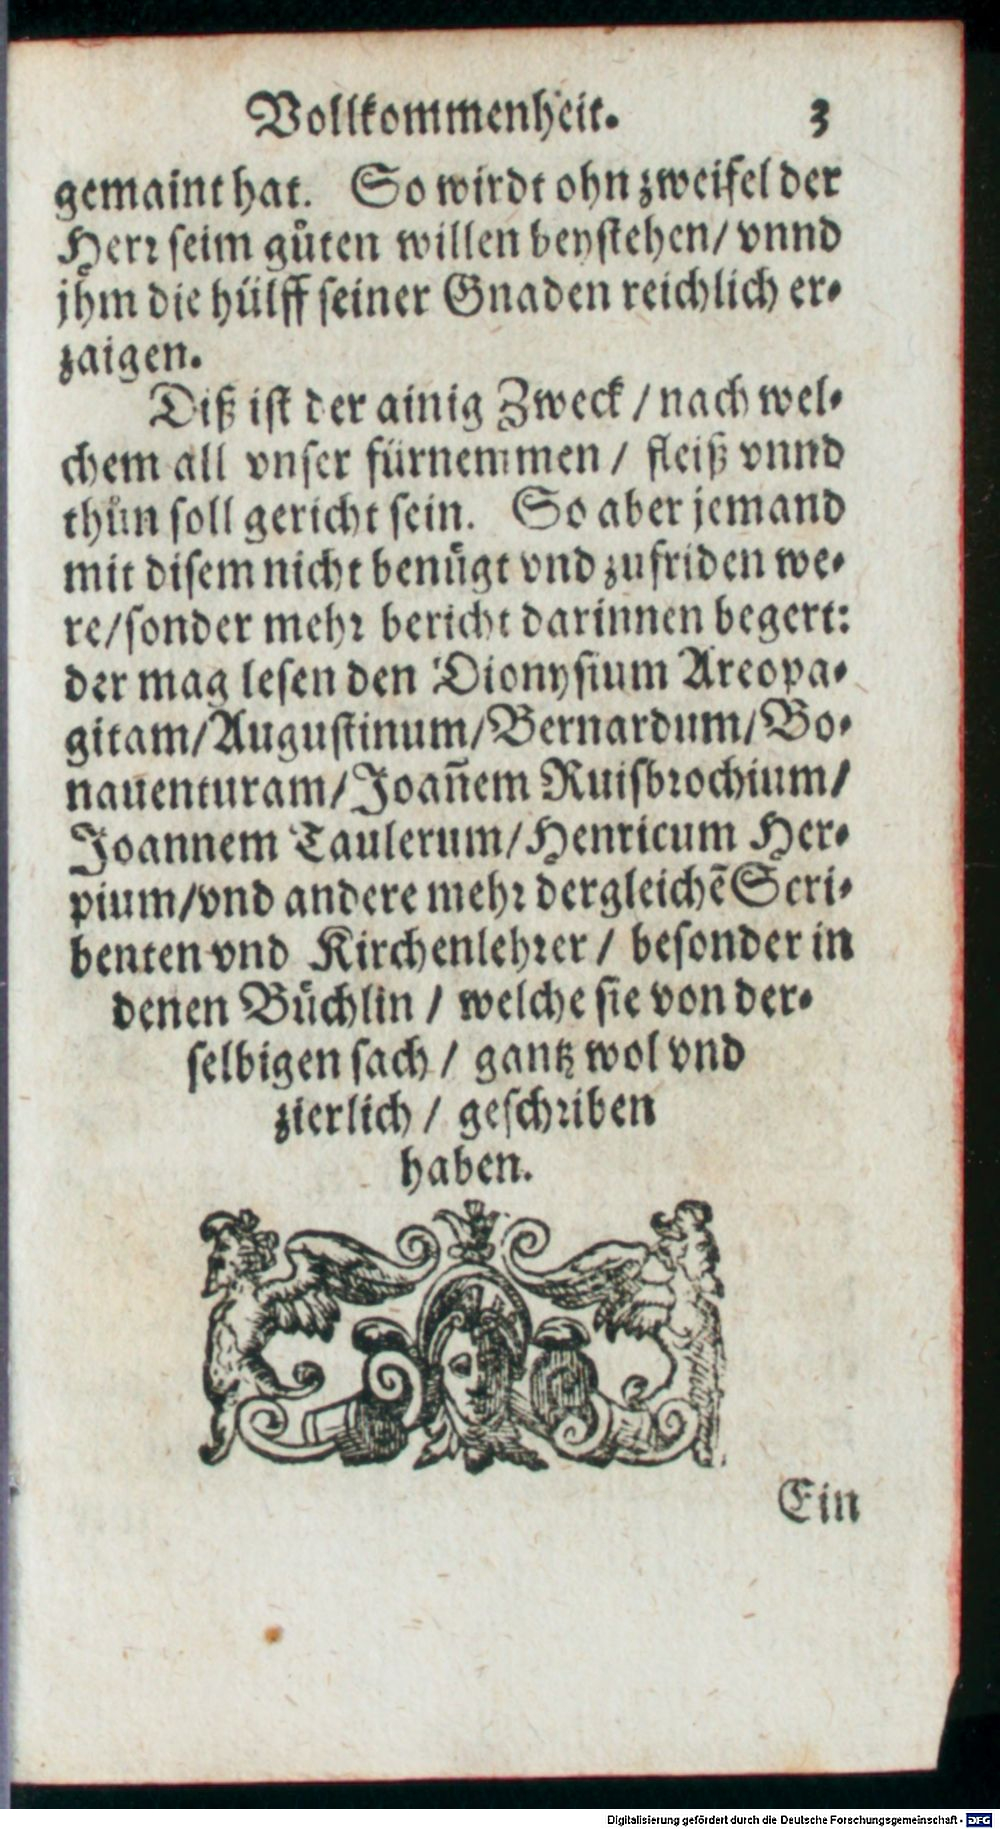 Vollkommenheit. 3
gemaint hat. So wirdt ohn zweifel der
Herr seim gůten willen beystehen/ vnnd
jhm die hülff seiner Gnaden reichlich er-
zaigen.
Diß ist der ainig Zweck / nach wel-
chem all vnser fürnemmen / fleiß vnnd
thůn soll gericht sein. So aber jemand
mit disem nicht benůgt vnd zufriden we-
re/sonder mehr bericht darinnen begert:
der mag lesen den Dionysium Areopa-
gitam/Augustinum/Bernardum/Bo-
nauenturam/Joan̄em Ruisbrochium/
Joannem Taulerum/Henricum Her-
pium/vnd andere mehr dergleichē Scri-
benten vnd Kirchenlehrer / besonder in
denen Bůchlin / welche sie von der-
selbigen sach / gantz wol vnd
zierlich / geschriben
haben.
Ein
Digitalisierung gefördert durch die Deutsche Forschungsgemeinschaft - DFG